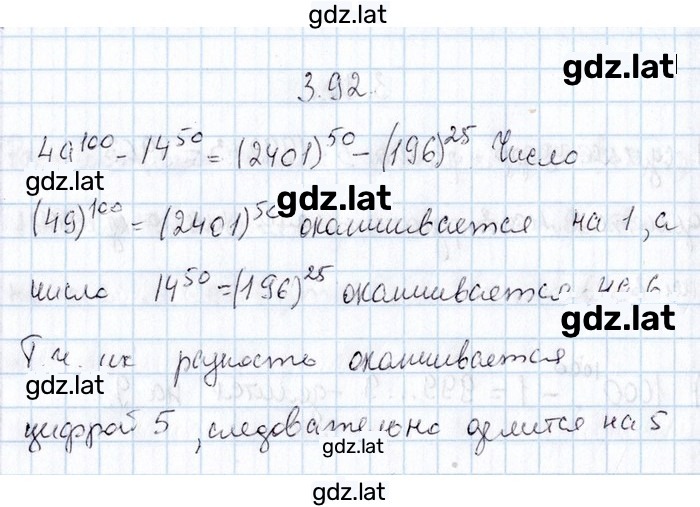 gdz.lat
gdz.lat
3.92.
49¹⁰⁰ - 14⁵⁰ = (2401)⁵⁰ - (196)²⁵ Число
gdz.lat
gdz.lat
(49)¹⁰⁰ = (2401)⁵⁰ оканчивается на 1, а
число 14⁵⁰ = (196)²⁵ оканчивается на 6
gdz.lat
Т.ч. их разность оканчивается
gdz.lat
цифрой 5, следовательно делится на 5
gdz.lat
gdz.lat